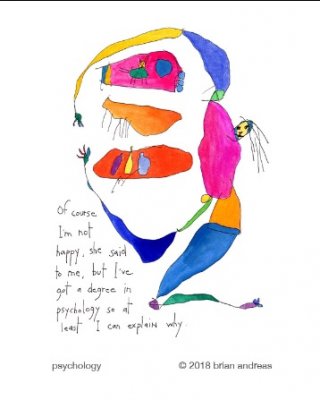 Of course
I'm not
happy, she said
to me, but I've
got a degree in
psychology so at
least I can explain why.
psychology
© 2018 brian andreas